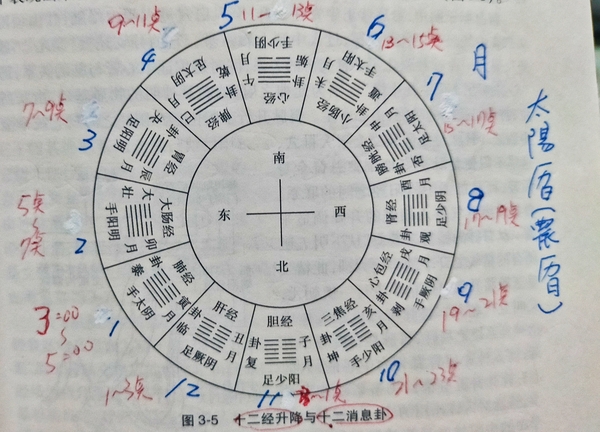 5
11~13点
手少阴
午月
姤卦
心经
6
13~15点
手太阳
未月
遁卦
小肠经
月
7
15~17点
足太阳
申月
否卦
膀胱经
8
17~19点
足少阴
酉月
观卦
肾经
9
19~21点
手厥阴
戌月
剥卦
心包经
10
21~23点
手少阳
亥月
坤卦
三焦经
11
~1点
足少阳
子月
复卦
胆经
12
1~3点
足厥阴
丑月
临卦
肝经
1
3:00
~
5:00
手太阴
寅月
泰卦
肺经
2
5点
~
7点
手阳明
卯月
大壮卦
大肠经
3
7~9点
足阳明
辰月
夬卦
胃经
4
9~11点
足太阴
巳月
乾卦
脾经
南
东
西
北
太陽曆(農曆)
图 3-5 十二经升降与十二消息卦